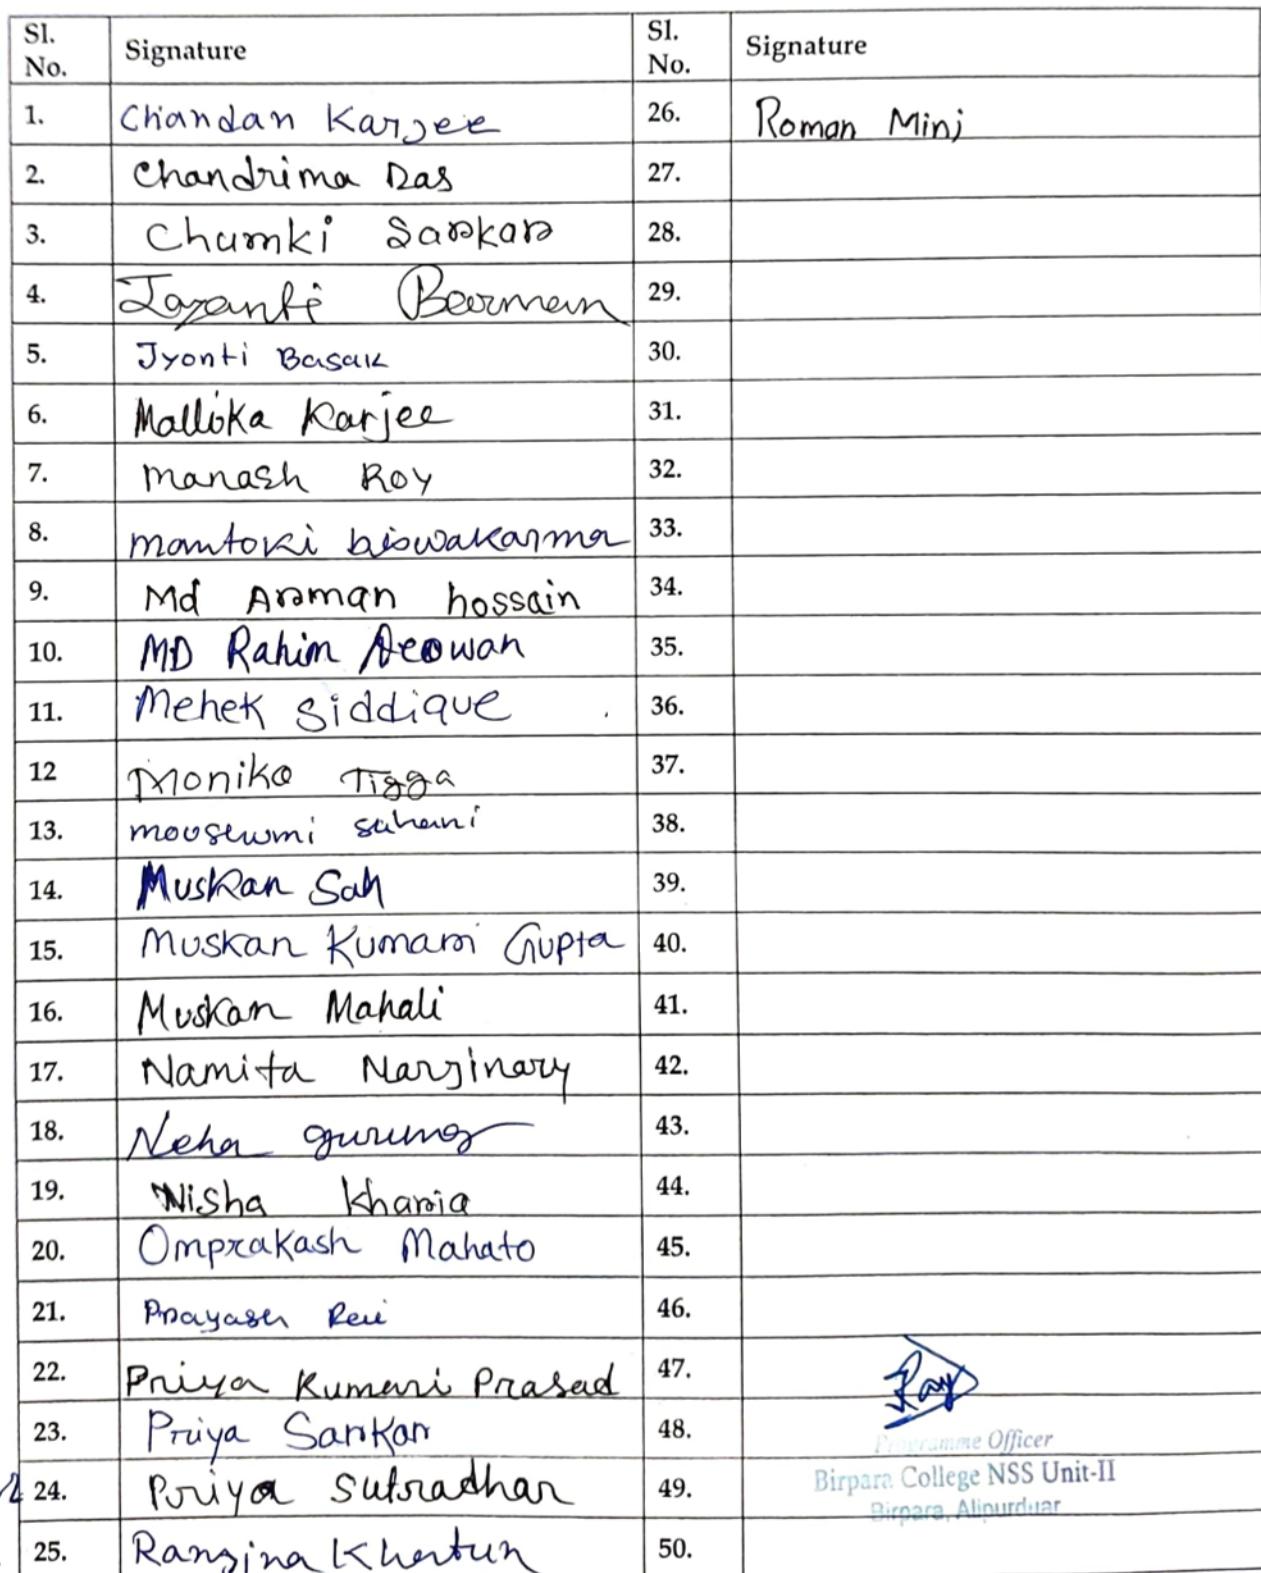 Sl. No. Signature Sl. No. Signature
1. Chandan Karjee 26. Roman Minj
2. Chandrima Das 27.
3. Chumki Sarkar 28.
4. Jayanti Barman 29.
5. Jyonti Basak 30.
6. Mallika Karjee 31.
7. Manash Roy 32.
8. mamtoki biswakarma 33.
9. Md Arman hossain 34.
10. MD Rahim 35.
11. Mehek Siddique 36.
12 Monika Tigga 37.
13. mousewmi sahani 38.
14. Muskan Sah 39.
15. Muskan Kumari Gupta 40.
16. Muskan Mahali 41.
17. Namita Narjinary 42.
18. Neha gurung 43.
19. Nisha Kharia 44.
20. Omprakash Mahato 45.
21. Prayash Rai 46.
22. Priya Kumari Prasad 47. Ray
23. Priya Sarkar 48.
Programme Officer
24. Priya Sutradhar 49.
Birpara College NSS Unit-II
Birpara, Alipurduar
25. Ranjina Khatun 50.